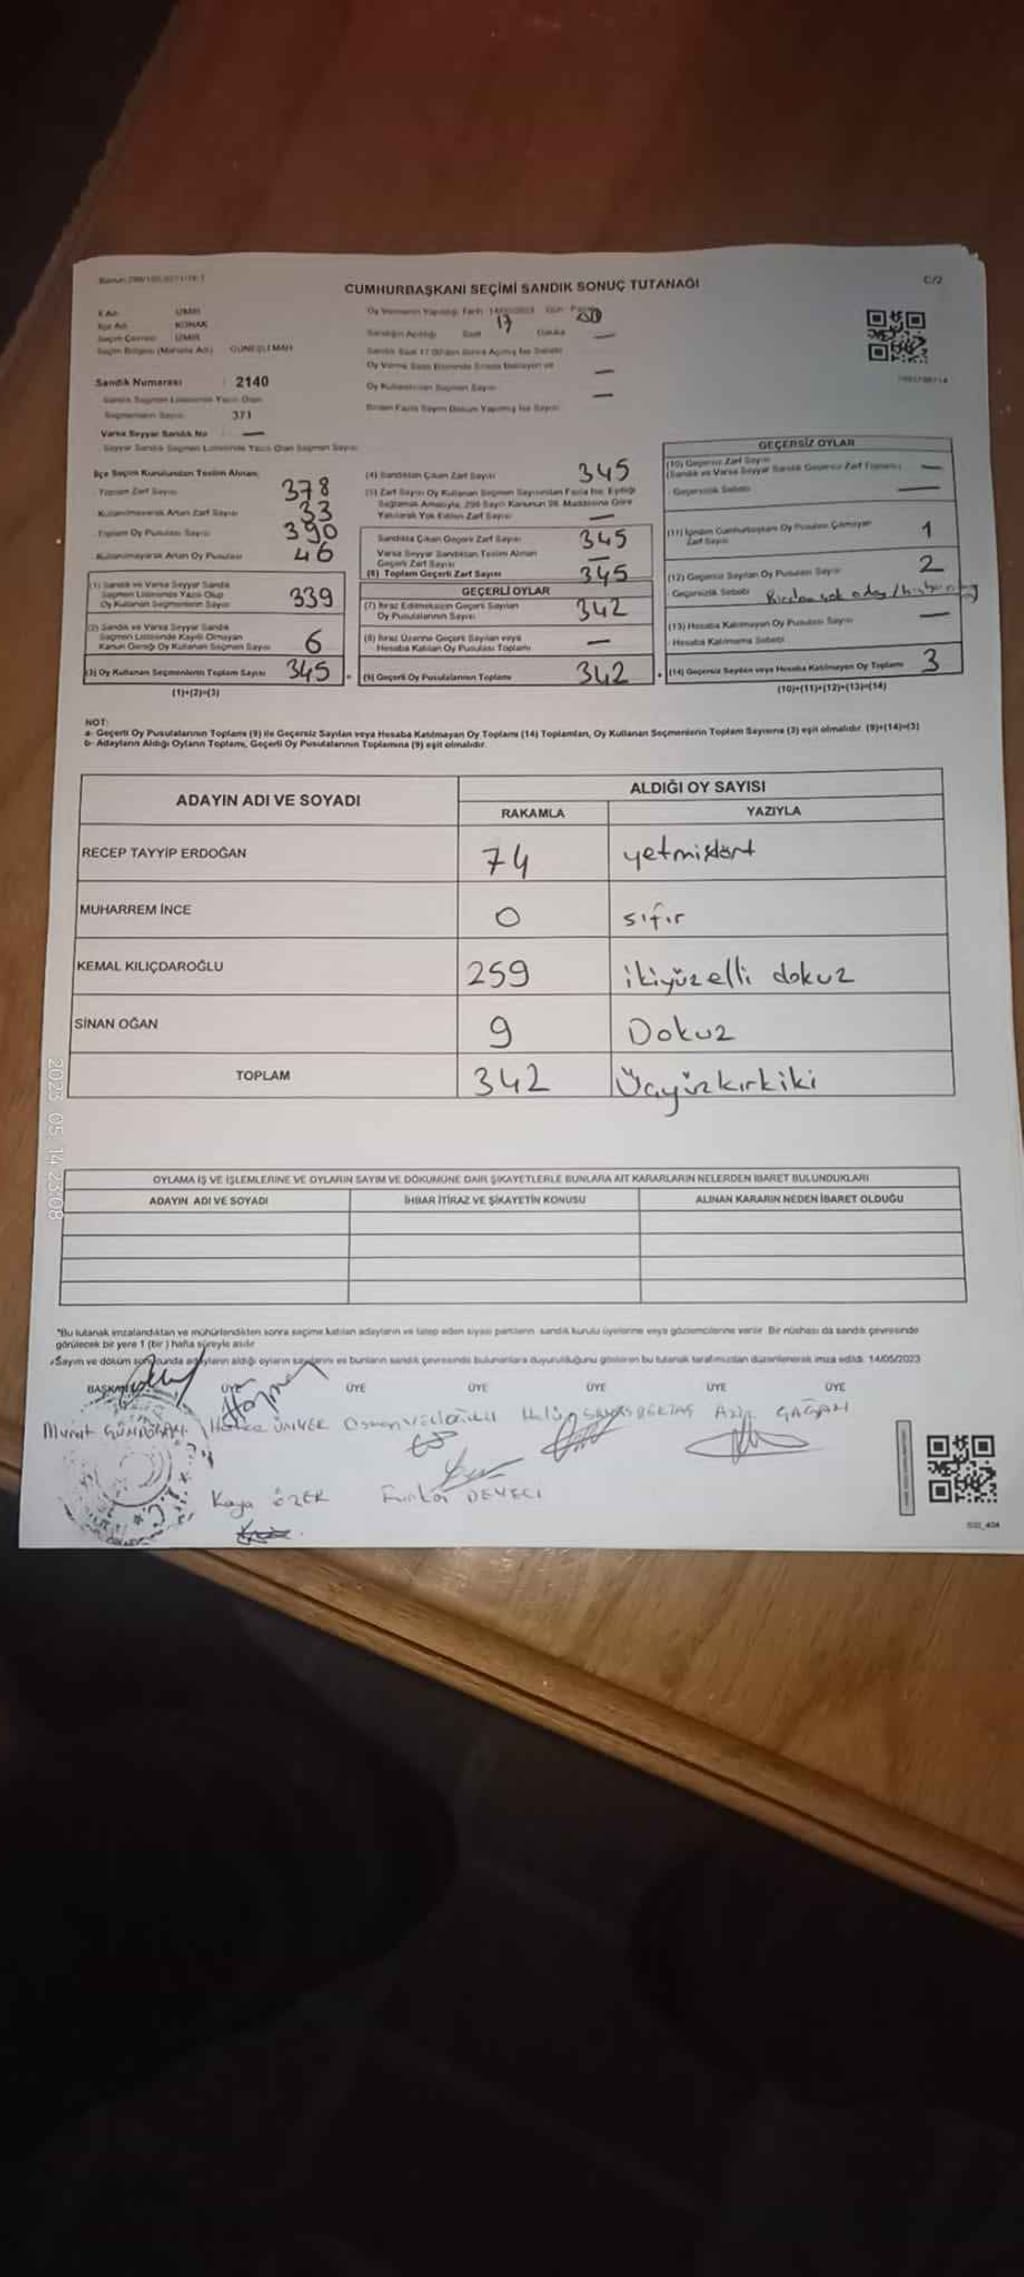 C/2
CUMHURBAŞKANI SEÇİMİ SANDIK SONUÇ TUTANAĞI
İl Adı : İZMİR
İlçe Adı : KONAK
Seçim Çevresi : İZMİR
Seçim Bölgesi (Mahalle Adı) : GÜNEŞLİ MAH
Sandık Numarası : 2140
Sandık Seçmen Listesinde Yazılı Olan
Seçmenlerin Sayısı : 371
Varsa Seyyar Sandık No : —
Seyyar Sandık Seçmen Listesinde Yazılı Olan Seçmen Sayısı
Oy Vermenin Yapıldığı Tarih : 14/05/2023 Gün : Pazar
Sandığın Açıldığı Saat 17 Dakika
Oy Kullandırılan Seçmen Sayısı —
Birden Fazla Sayım Döküm Yapılmış İse Sayısı
İlçe Seçim Kurulundan Teslim Alınan
Toplam Zarf Sayısı 378
Kullanılmayarak Artan Zarf Sayısı 33
Toplam Oy Pusulası Sayısı 390
Kullanılmayarak Artan Oy Pusulası 46
(1) Sandık ve Varsa Seyyar Sandık
Seçmen Listesinde Yazılı Olup
Oy Kullanan Seçmenlerin Sayısı 339
(2) Sandık ve Varsa Seyyar Sandık
Seçmen Listesinde Kayıtlı Olmayan
Kanun Gereği Oy Kullanan Seçmen Sayısı 6
(3) Oy Kullanan Seçmenlerin Toplam Sayısı 345
(1)+(2)=(3)
(4) Sandıktan Çıkan Zarf Sayısı 345
(5) Zarf Sayısı Oy Kullanan Seçmen Sayısından Fazla İse, Eşitliği
Sağlamak Amacıyla, 298 Sayılı Kanunun 98. Maddesine Göre
Yakılarak Yok Edilen Zarf Sayısı —
Sandıkta Çıkan Geçerli Zarf Sayısı 345
Varsa Seyyar Sandıktan Teslim Alınan
Geçerli Zarf Sayısı —
(6) Toplam Geçerli Zarf Sayısı 345
GEÇERLİ OYLAR
(7) İtiraz Edilmeksizin Geçerli Sayılan
Oy Pusulalarının Sayısı 342
(8) İtiraz Üzerine Geçerli Sayılan veya
Hesaba Katılan Oy Pusulası Toplamı —
(9) Geçerli Oy Pusulalarının Toplamı 342
GEÇERSİZ OYLAR
(10) Geçersiz Zarf Sayısı
(Sandık ve Varsa Seyyar Sandık Geçersiz Zarf Toplamı) —
Geçersizlik Sebebi —
(11) İçinden Cumhurbaşkanı Oy Pusulası Çıkmayan
Zarf Sayısı 1
(12) Geçersiz Sayılan Oy Pusulası Sayısı 2
Geçersizlik Sebebi Birden çok aday /
(13) Hesaba Katılmayan Oy Pusulası Sayısı —
Hesaba Katılmama Sebebi
(14) Geçersiz Sayılan veya Hesaba Katılmayan Oy Toplamı 3
(10)+(11)+(12)+(13)=(14)
NOT:
a- Geçerli Oy Pusulalarının Toplamı (9) ile Geçersiz Sayılan veya Hesaba Katılmayan Oy Toplamı (14) Toplamları, Oy Kullanan Seçmenlerin Toplam Sayısına (3) eşit olmalıdır. (9)+(14)=(3)
b- Adayların Aldığı Oyların Toplamı, Geçerli Oy Pusulalarının Toplamına (9) eşit olmalıdır.
ADAYIN ADI VE SOYADI ALDIĞI OY SAYISI
RAKAMLA YAZIYLA
RECEP TAYYİP ERDOĞAN 74 yetmişdört
MUHARREM İNCE 0 sıfır
KEMAL KILIÇDAROĞLU 259 ikiyüzelli dokuz
SİNAN OĞAN 9 Dokuz
TOPLAM 342 Üçyüzkırkiki
2023 05 14 23:08
OYLAMA İŞ VE İŞLEMLERİNE VE OYLARIN SAYIM VE DÖKÜMÜNE DAİR ŞİKAYETLERLE BUNLARA AİT KARARLARIN NELERDEN İBARET BULUNDUKLARI
ADAYIN ADI VE SOYADI İHBAR İTİRAZ VE ŞİKAYETİN KONUSU ALINAN KARARIN NEDEN İBARET OLDUĞU
*Bu tutanak imzalandıktan ve mühürlendikten sonra seçime katılan adayların ve talep eden siyasi partilerin sandık kurulu üyelerine veya gözlemcilerine verilir. Bir nüshası da sandık çevresinde
görülecek bir yere 1 (bir) hafta süreyle asılır.
*Sayım ve döküm sonucunda adayların aldığı oyların sayılarını ve bunların sandık çevresinde bulunanlara duyurulduğunu gösteren bu tutanak tarafımızdan düzenlenerek imza edildi. 14/05/2023
BAŞKAN ÜYE ÜYE ÜYE ÜYE ÜYE ÜYE
Murat GÜNDOĞAN ÜNVER Osman
Kaya ÖZER DEVECİ